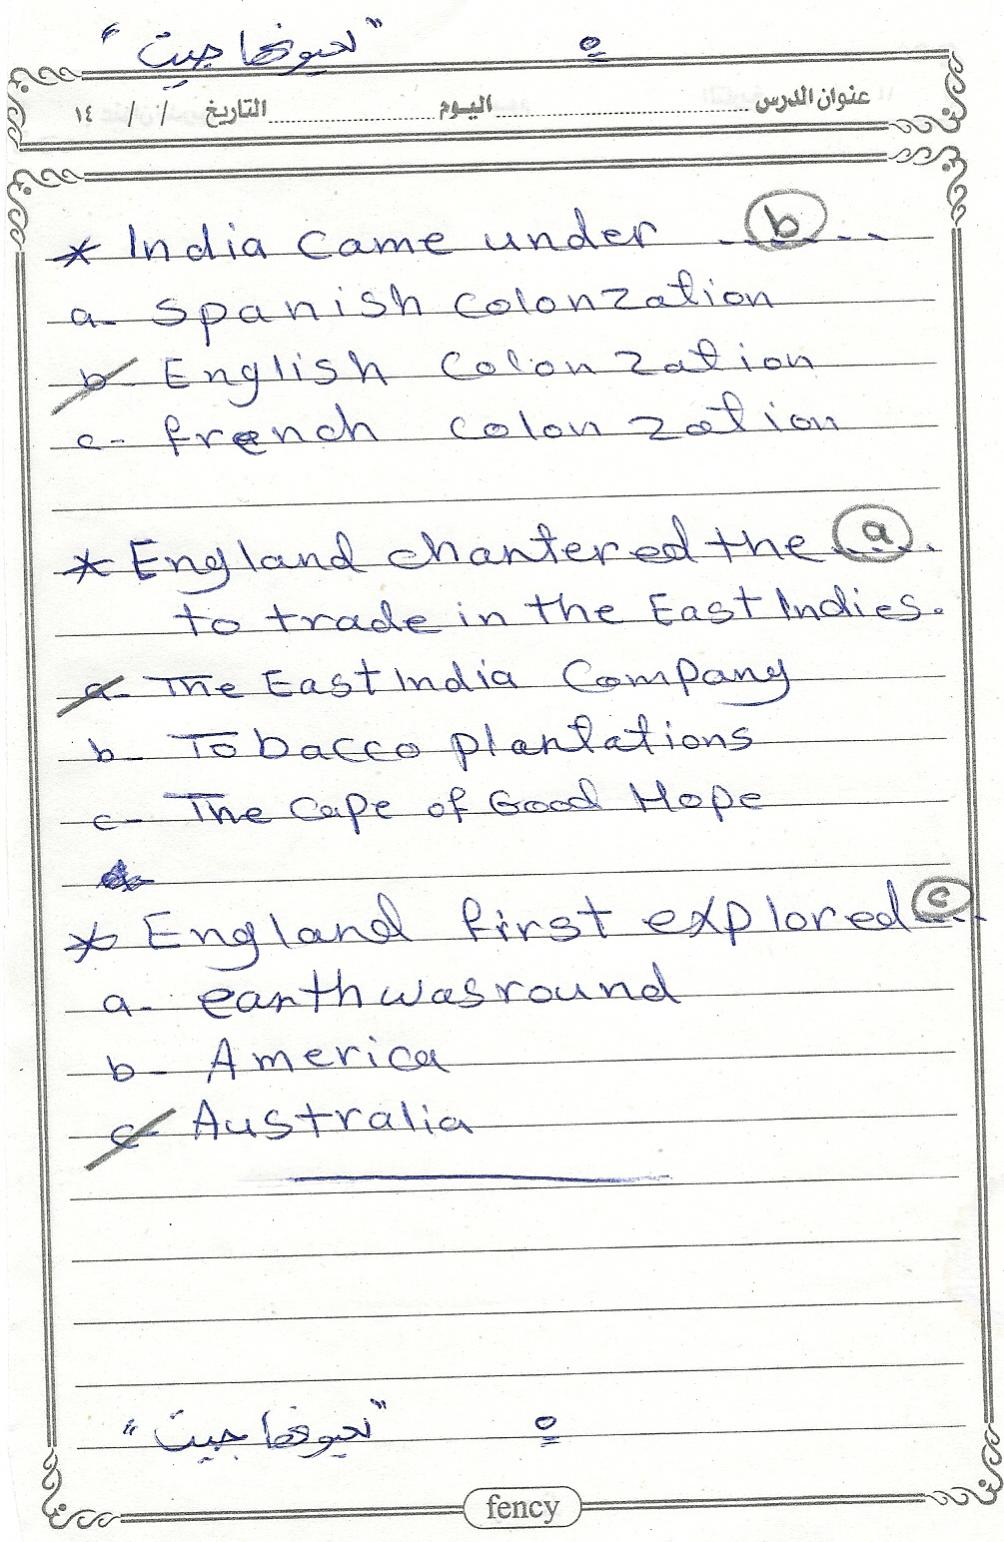 ٥
عنوان الدرس اليوم التاريخ / / ١٤
* India came under b
a- spanish colonzation
b- English colonzation
c- french colonzation
* England chantered the a
to trade in the East Indies.
a- The East India Company
b- Tobacco plantations
c- The Cape of Good Hope
* England first explored c
a- earth was round
b- America
c- Australia
٥
fency